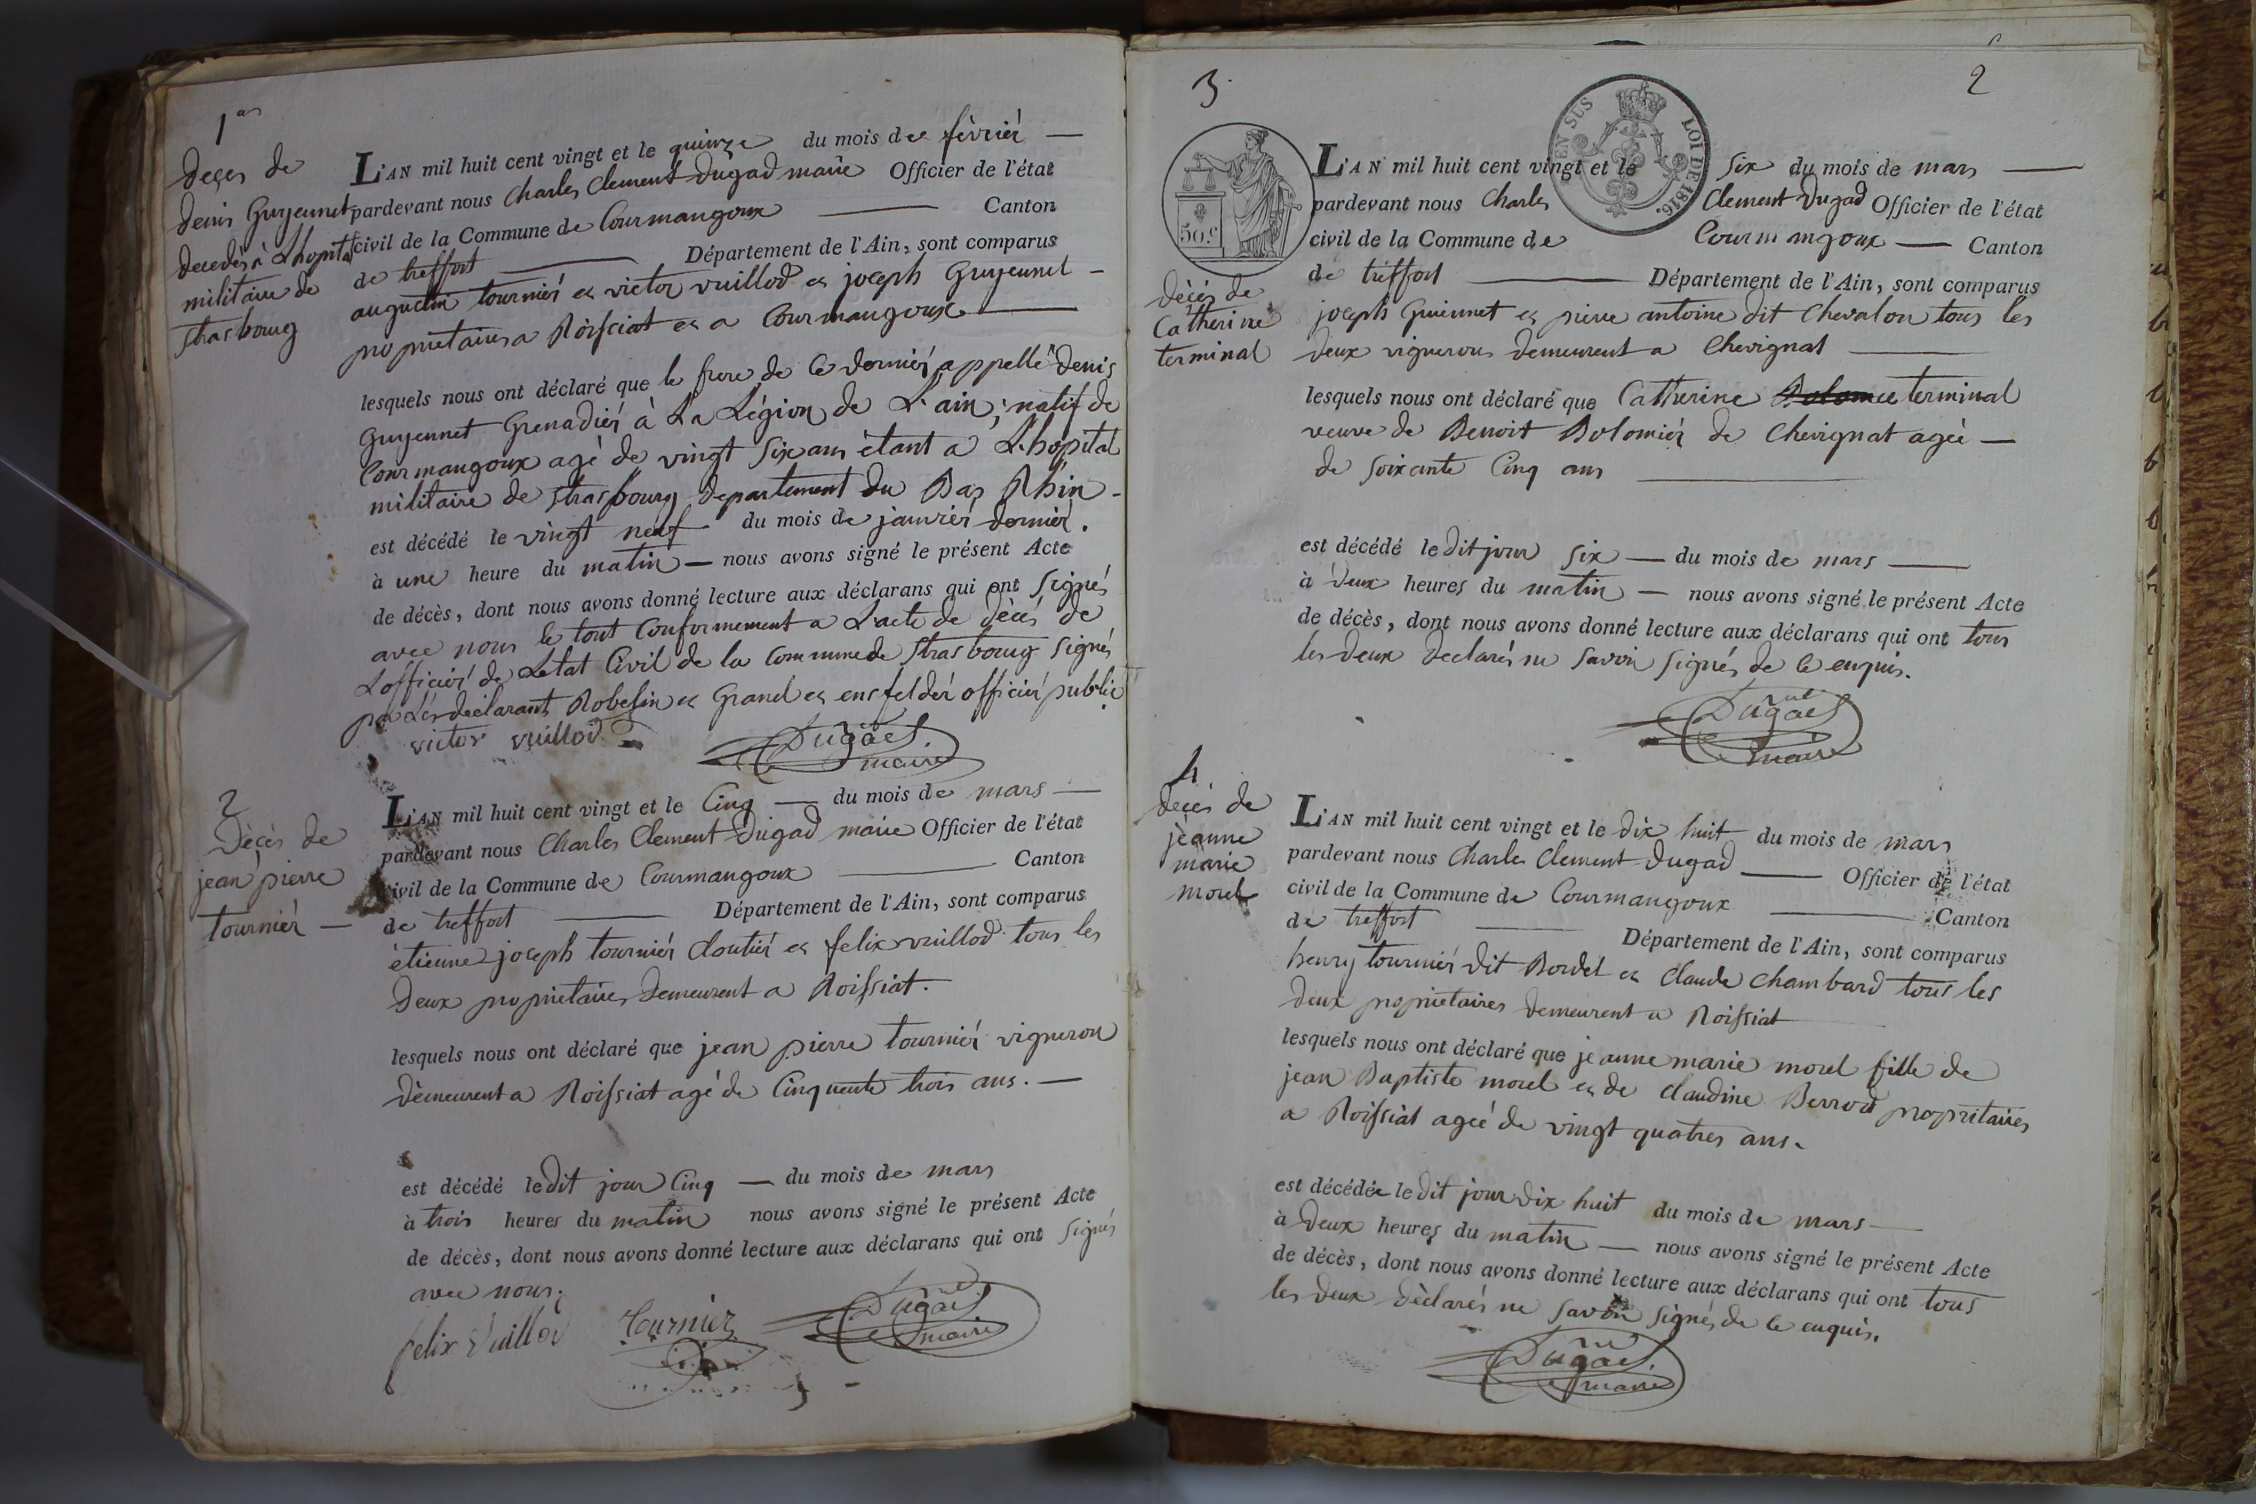 1er
Deçes de
denis Guyennet
decedès à Lhopital
militaire de
Strasbourg
L'AN mil huit cent vingt et le quinze du mois de février
pardevant nous Charles Clement Dugad maire Officier de l'état
civil de la Commune de Courmangoux Canton
de treffort Département de l'Ain, sont comparus
augustin tournier et victor vuillod et joseph Guyennet
propriétaires a Roissiat et a Courmangoux
lesquels nous ont déclaré que le frere de Ce dernier appellé denis
Guyennet Grenadier à La Légion de L'ain, natif de
Courmangoux agé de vingt Six ans étant a L'hopital
militaire de Strasbourg departement du Bas Rhin
est décédé le vingt neuf du mois de janvier dernier.
à une heure du matin nous avons signé le présent Acte
de décès, dont nous avons donné lecture aux déclarans qui ont Signés
avec nous le tout Conformement a L'acte de décés de
L'officier de Letat Civil de la Commune de Strasbourg signés
par Les déclarants Robelin et Grand et ensfelder officier public
victor vuillod Dugad
maire
2
Décès de
jean pierre
tournier
L'AN mil huit cent vingt et le Cinq du mois de mars
pardevant nous Charles Clement Dugad maire Officier de l'état
civil de la Commune de Courmangoux Canton
de treffort Département de l'Ain, sont comparus
étienne joseph tournier Cloutier et felix vuillod tous les
Deux propriétaires Demeurent a Roissiat.
lesquels nous ont déclaré que jean pierre tournier vigneron
Demeurent a Roissiat agé de Cinquente trois ans.
est décédé le Dit jour Cinq du mois de mars
à trois heures du matin nous avons signé le présent Acte
de décès, dont nous avons donné lecture aux déclarans qui ont Signés
avec nous.
felix Vuillod Turnier Dugad
maire
2
3
EN SUS LOI DE 1816.
50 c
décés de
Catherine
terminal
L'AN mil huit cent vingt et le Six du mois de mars
pardevant nous Charles Clement Dugad Officier de l'état
civil de la Commune de Courmangoux Canton
de treffort Département de l'Ain, sont comparus
joseph Guiennet et pierre antoine dit Chevalon tous les
Deux vignerons demeurent a Chevignat
lesquels nous ont déclaré que Catherine terminal
veuve de Benoit Bolomier de Chevignat agée
de soixante Cinq ans
est décédé le Dit jour six du mois de mars
à Deux heures du matin nous avons signé le présent Acte
de décès, dont nous avons donné lecture aux déclarans qui ont tous
les Deux Declarés ne Savoir signés de Ce enquis.
Dugad
maire
4
décés de
jeanne
marie
morel
L'AN mil huit cent vingt et le Dix huit du mois de mars
pardevant nous Charles Clement Dugad Officier de l'état
civil de la Commune de Courmangoux Canton
de treffort Département de l'Ain, sont comparus
henry tournier Dit Bordel et Claude Chambard tous les
Deux propriétaires demeurent a Roissiat
lesquels nous ont déclaré que jeanne marie morel fille de
jean Baptiste morel et de Claudine Berrod propritaires
a Roissiat ageé de vingt quatres ans.
est décédée le Dit jour Dix huit du mois de mars
à Deux heures du matin nous avons signé le présent Acte
de décès, dont nous avons donné lecture aux déclarans qui ont tous
les Deux Déclarés ne Savoir signés de Ce enquis.
Dugad
maire